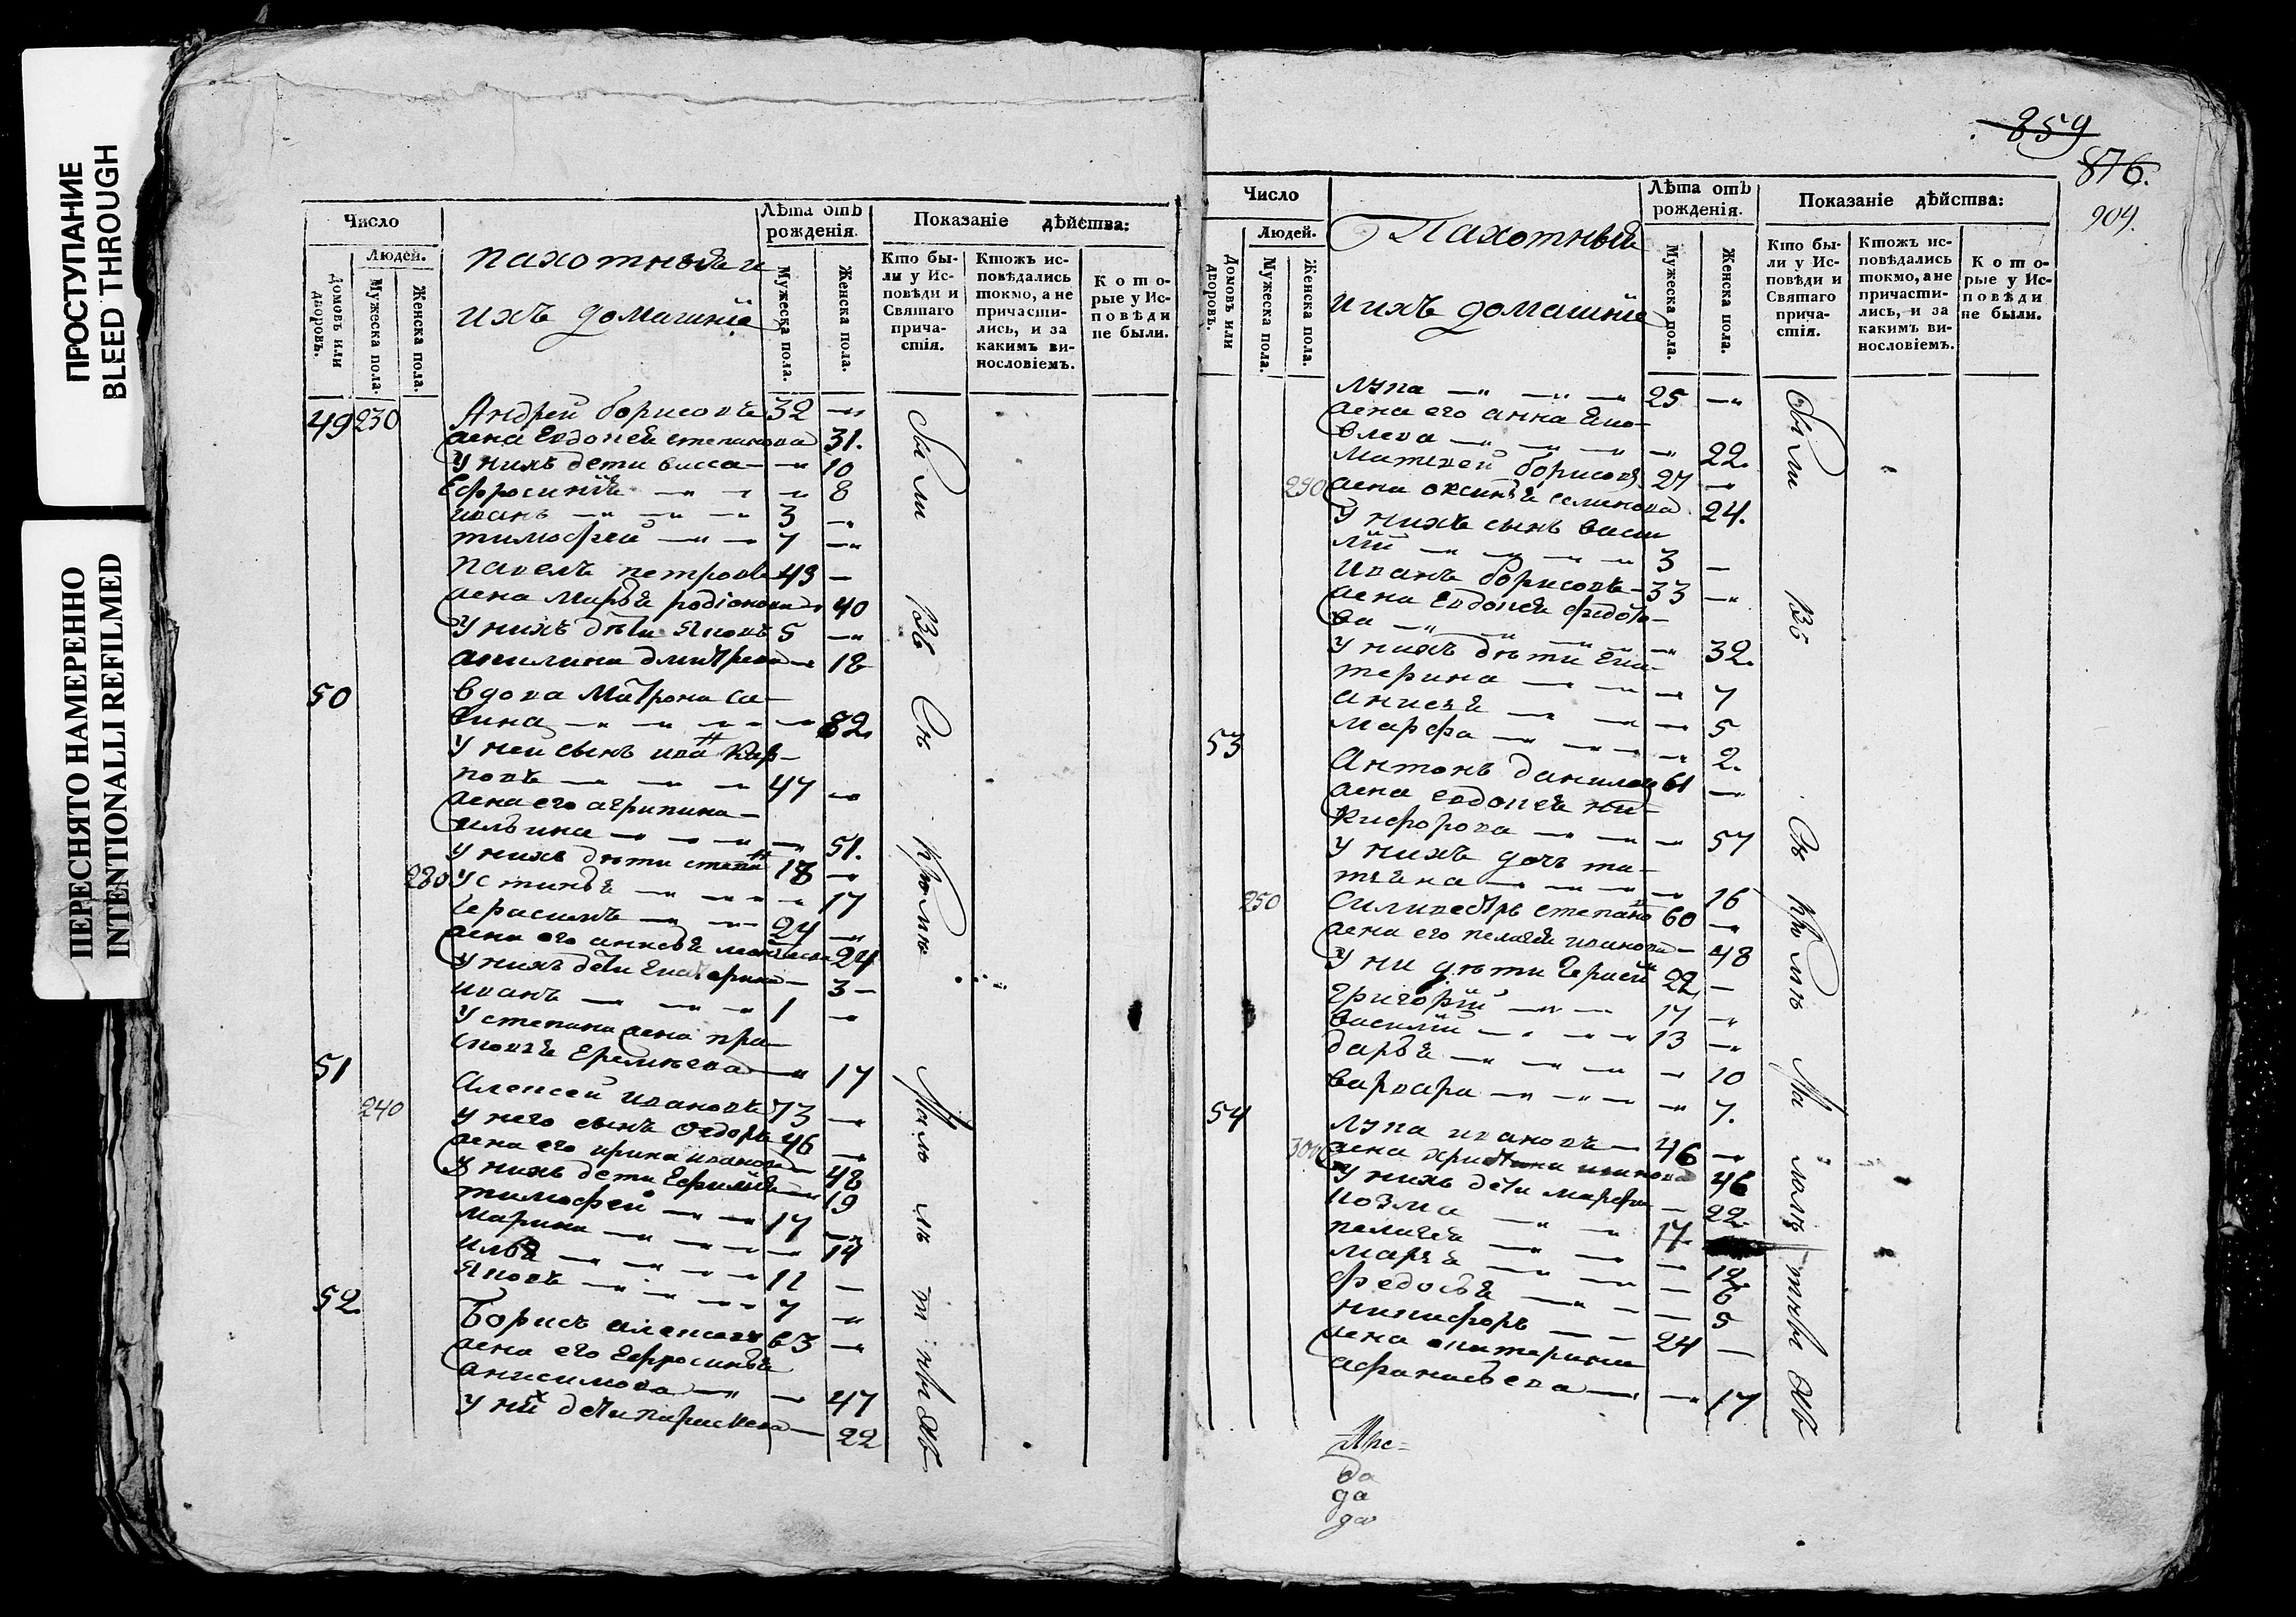 ПРОСТУПАНИЕ
BLEED THROUGH
ПЕРЕСНЯТО НАМЕРЕННО
INTENTIONALLI REFILMED
Число
Людей.
Домовъ или дворовъ.
Мужеска пола.
Женска пола.
пахотныя и
ихъ домашніе
Лѣта отъ рожденія.
Мужеска пола.
Женска пола.
Показаніе дѣйства:
Кто были у Исповѣди и Святаго причастія.
Ктожъ исповѣдались токмо, а не причастились, и за какимъ винословіемъ.
Которые у Исповѣди не были.
49 230 Андрей борисовъ 32
жена Евдокея степанова 31.
У нихъ дети васса 10
Ефросинія 8
иванъ 3
тимофей 7
павелъ петровъ 43
жена Марья родіонова 40
У нихъ дѣти Яковъ 5
акилина дмитрева 18
50 вдова Матрона са-
вина 82.
У неи сынъ ива Кар-
повъ 47
жена его агрипина
ильина 51.
У нихъ дѣти степа 18
280 Устинья 17
Герасимъ 24
жена его 24
У нихъ дети Екатерина 3
иванъ 1
У степана жена пра-
сковья Еремѣева 17
51 Алексей ивановъ 73
240 У него сынъ Федоръ 46
жена его ирина иванова 48
У нихъ дети Ефимія 19
тимофей 17
Марина 14
илья 11
Яковъ 7
52. Борисъ алексеевъ 63
жена его Ефросинья
анисимова 47
У них дети параскева 22
859
876.
904.
Число
Людей.
Домовъ или дворовъ.
Мужеска пола.
Женска пола.
Пахотныя
и ихъ домашніе
Лѣта отъ рожденія.
Мужеска пола.
Женска пола.
Показаніе дѣйства:
Кто были у Исповѣди и Святаго причастія.
Ктожъ исповѣдались токмо, а не причастились, и за какимъ винословіемъ.
Которые у Исповѣди не были.
лупа 25
жена его анна Яко-
влева 22.
Матвей борисовъ 27
290 жена оксинья семенова 24.
У нихъ сынъ васи
лій 3
Иванъ борисовъ 33
жена Евдокея федото-
ва 32.
У нихъ дѣти Ека-
терина 7
анисья 5
марфа 2.
53 Антонъ данилов 61
жена евдокея ни-
кифорова 57
У нихъ доч та-
тяна 16
250 Силивестръ степано 60
жена его пелагея иванова 48
У ни дѣти Герасим 22
Григорій 17
василій 13
дарья 10
варвара 7.
54 лупа ивановъ 46
300 жена христина иванова 46
У нихъ дети марфа 22.
козма 17.
пелагея 12.
марья 6
федосья 5
никифоръ 24
жена екатерина
афанасьева 17
да
да
да